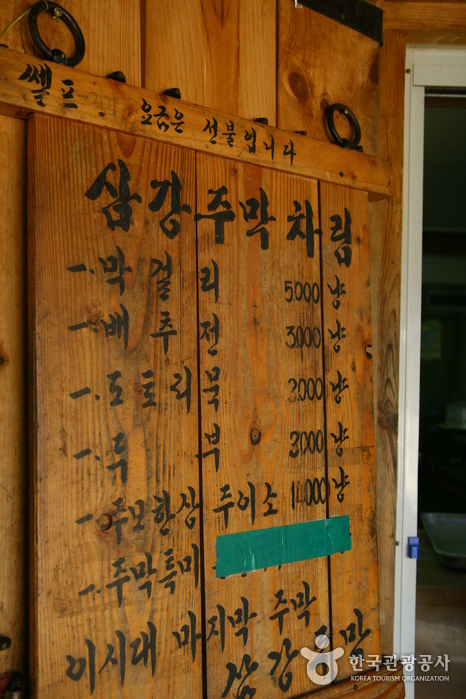 쎌프. 요금은 선불입니다
삼강주막차림
一. 막걸리 5.000냥
一. 배추전 3.000냥
一. 도토리묵 3.000냥
一. 두부 3.000냥
一. 주모한상 주이소 14.000냥
一. 주막특미
이시대 마지막 주막
삼강주막
한국관광공사
KOREA TOURISM ORGANIZATION